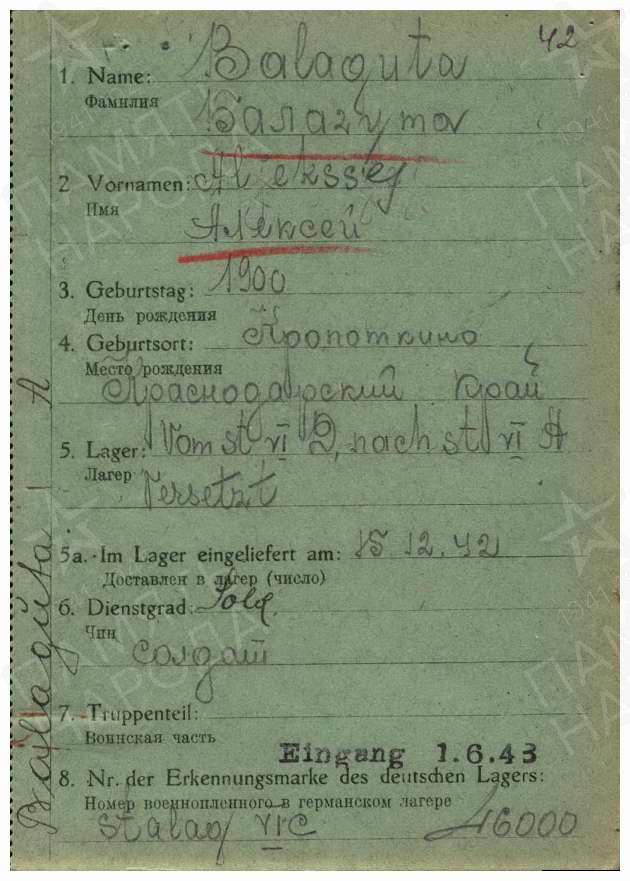 42
1. Name: Balaguta
Фамилия
Балагута
2 Vornamen: Alekssej
Имя
Алексей
3. Geburtstag: 1900
День рождения
4. Geburtsort: Кропоткино
Место рождения
Краснодарский край
5. Lager: Vom st VI D, nach st VI A
Лагер
Versetzt
5a. Im Lager eingeliefert am: 15 12. 42
Доставлен в лагер (число)
6. Dienstgrad: Sold.
Чин
солдат
7. Truppenteil:
Воинская часть
Eingang 1.6.43
8. Nr. der Erkennungsmarke des deutschen Lagers:
Номер военнопленного в германском лагере
Stalag VI C 16000
Balaguta A
ПАМЯТЬ
НАРОДА